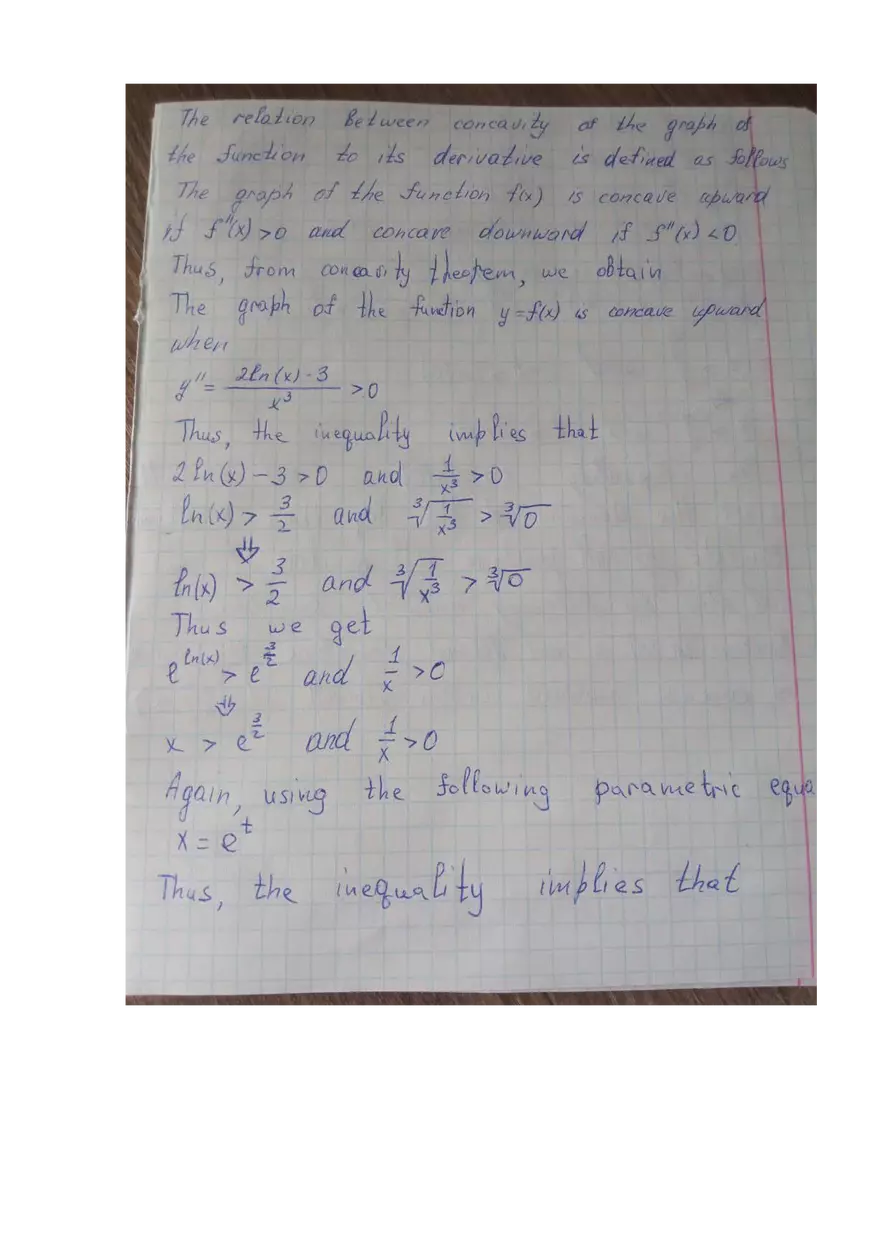 The relation Between concavity of the graph of
the function to its derivative is defined as follows
The graph of the function f(x) is concave upward
if f''(x) > 0 and concave downward if f''(x) < 0
Thus, from concavity theorem, we obtain
The graph of the function y = f(x) is concave upward
when
y'' = (2ln(x) - 3)/x³ > 0
Thus, the inequality implies that
2 ln(x) - 3 > 0 and 1/x³ > 0
ln(x) > 3/2 and ∛(1/x³) > ∛0
⇓
ln(x) > 3/2 and ∛(1/x³) > ∛0
Thus we get
e^ln(x) > e^(3/2) and 1/x > 0
⇓
x > e^(3/2) and 1/x > 0
Again, using the following parametric equa
x = e^t
Thus, the inequality implies that